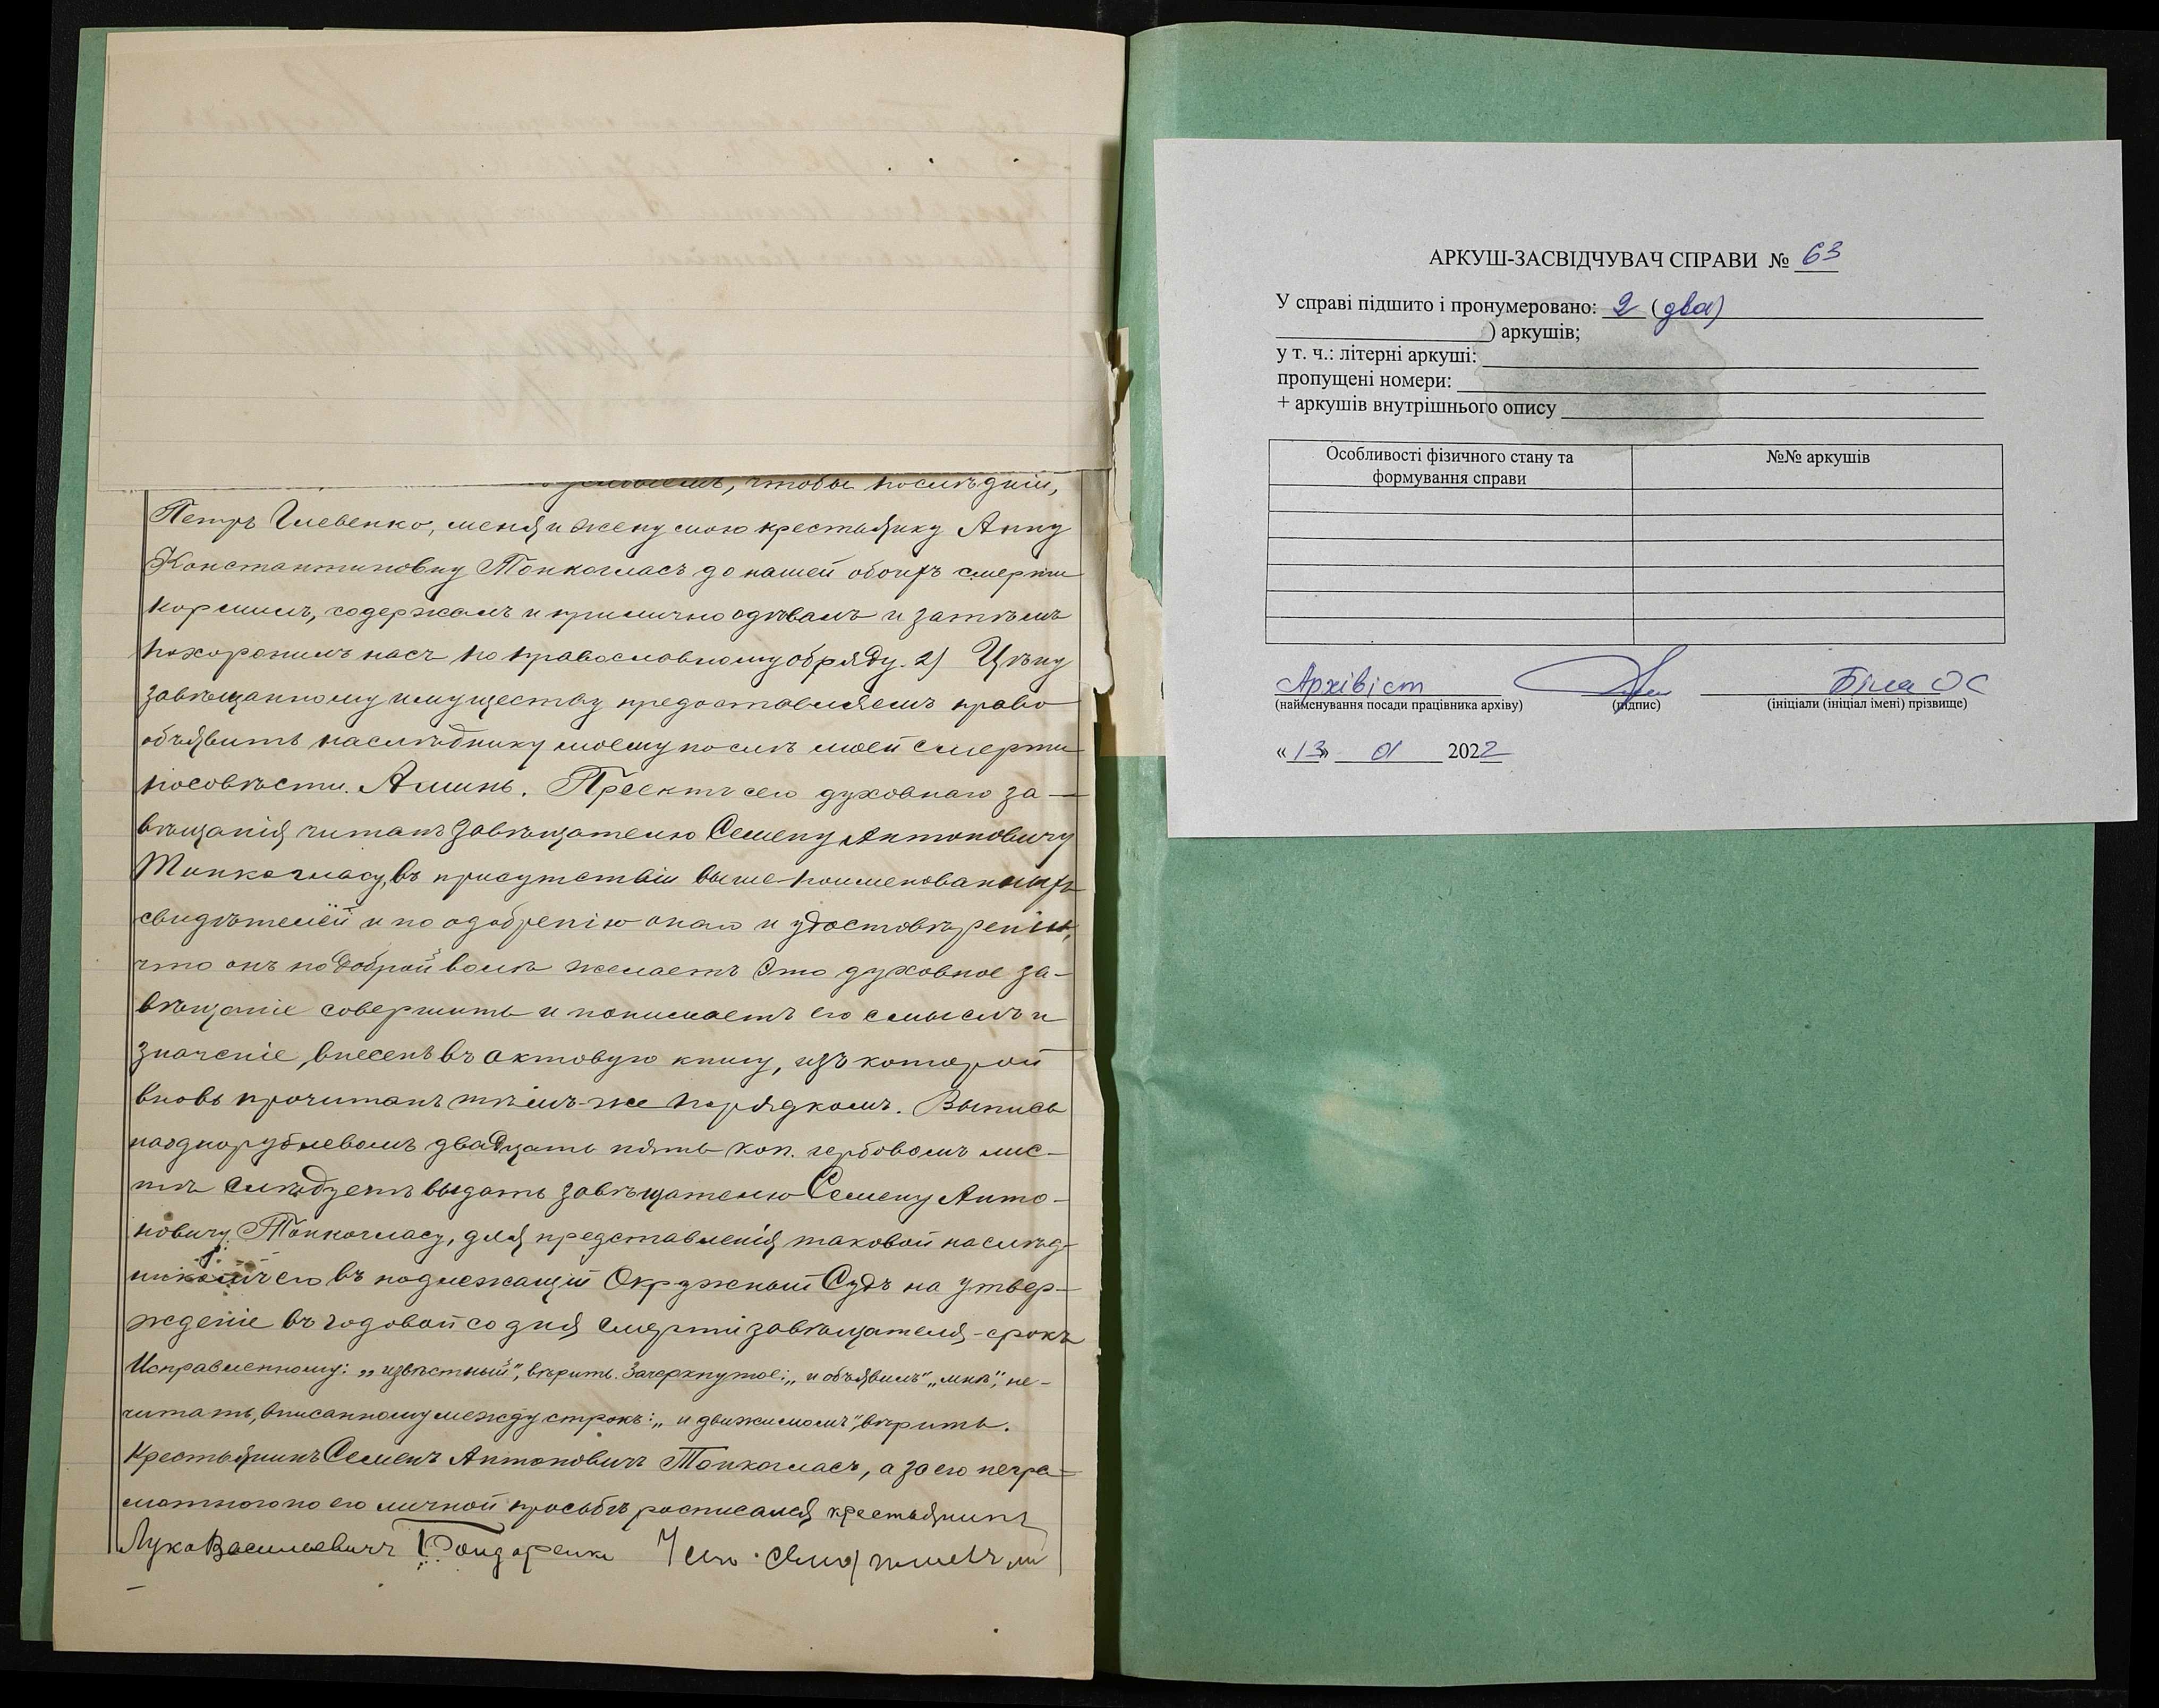 условіемъ, чтобы послѣдній,
Петръ Глевенко, меня и жену мою крестьянку Анну
Константиновну Тонкогласъ до нашей обоихъ смерти
кормилъ, содержалъ и прилично одѣвалъ и затѣмъ
похоронилъ насъ по православному обряду. 2) Цѣну
завѣщанному имуществу предоставляемъ право
объявить наслѣднику моему послѣ моей смерти
по совѣсти. Аминь. Проектъ сего духовнаго за-
вѣщанія читанъ завѣщателю Семену Антоновичу
Тонкогласу, въ присутствіи выше-поименованныхъ
свидѣтелей и по одобренію онаго и удостовѣренію,
что онъ по доброй волѣ желаетъ это духовное за-
вѣщаніе совершить и понимаетъ его смыслъ и
значеніе, внесенъ въ актовую книгу, изъ которой
вновь прочитанъ тѣмъ-же порядкомъ. Выпись
на однорублевомъ двадцать пять коп. гербовомъ лис-
тѣ слѣдуетъ выдать завѣщателю Семену Анто-
новичу Тонкогласу, для представленія таковой наслѣд-
никомъ его въ подлежащій Окружный Судъ на утвер-
жденіе въ годовой со дня смерти завѣщателя-срокъ
Исправленному: „извѣстный", вѣрить. Зачеркнутое: „и объявилъ" „мнѣ", не-
читать, вписанному между строкъ: „и движимомъ", вѣрить.
Крестьянинъ Семенъ Антоновичъ Тонкогласъ, а за его негра-
мотного по его личной просьбѣ росписался крестьянинъ
Лука Васильевичъ Бондаренко
АРКУШ-ЗАСВІДЧУВАЧ СПРАВИ № 63
У справі підшито і пронумеровано: 2 (два)
) аркушів;
у т. ч.: літерні аркуші:
пропущені номери:
+ аркушів внутрішнього опису
Особливості фізичного стану та
формування справи
№№ аркушів
Архівіст Біла ОС
(найменування посади працівника архіву) (підпис) (ініціали (ініціал імені) прізвище)
«13» 01 2022